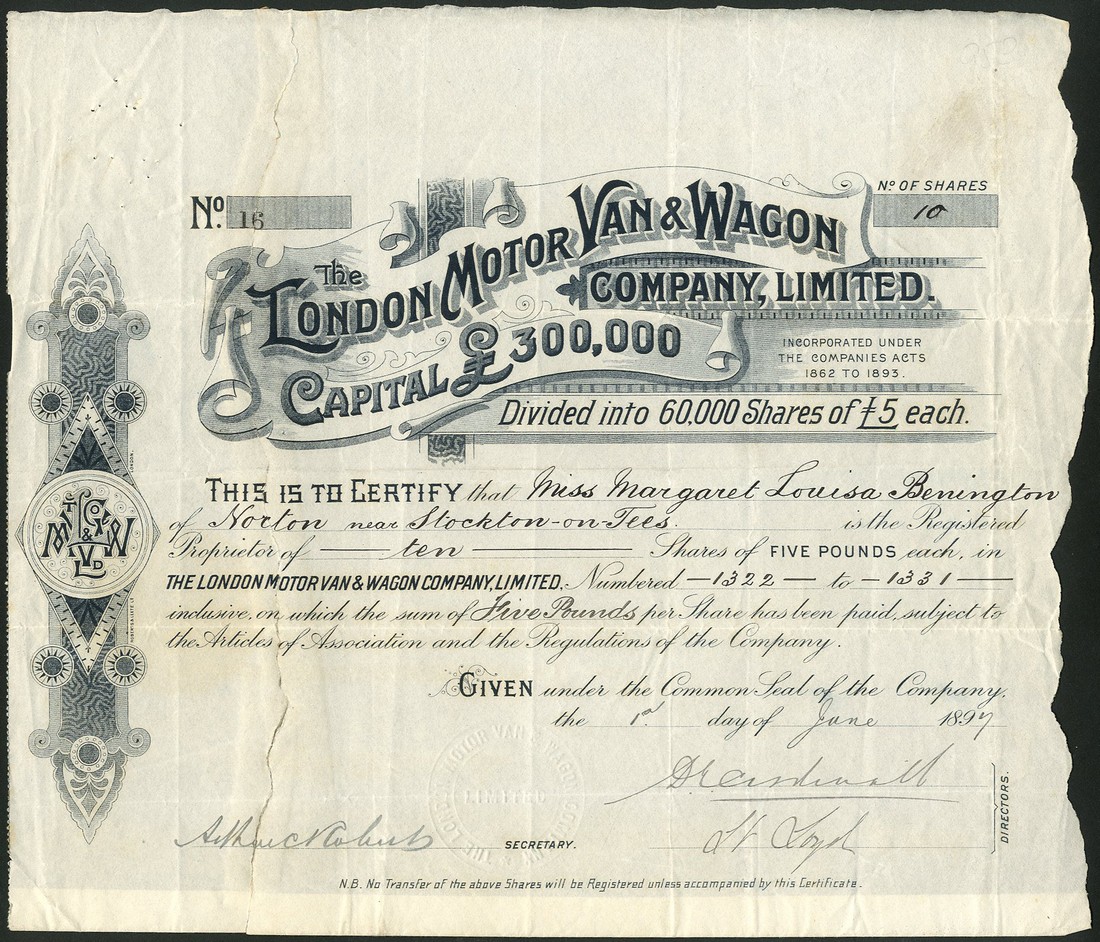 No 16
No OF SHARES
10
The
LONDON MOTOR VAN & WAGON
COMPANY, LIMITED.
CAPITAL £300,000
INCORPORATED UNDER
THE COMPANIES ACTS
1862 TO 1893.
Divided into 60,000 Shares of £5 each.
THIS IS TO CERTIFY that Miss Margaret Louisa Benington
of Norton near Stockton-on-Tees. is the Registered
Proprietor of — ten — Shares of FIVE POUNDS each, in
THE LONDON MOTOR VAN & WAGON COMPANY, LIMITED. Numbered —1322— to —1331—
inclusive, on which the sum of Five Pounds per Share has been paid, subject to
the Articles of Association and the Regulations of the Company.
GIVEN under the Common Seal of the Company,
the 1st day of June 1897
THE LONDON MOTOR VAN & WAGON
LIMITED
SECRETARY.
DIRECTORS.
N.B. No Transfer of the above Shares will be Registered unless accompanied by this Certificate.
LONDON.